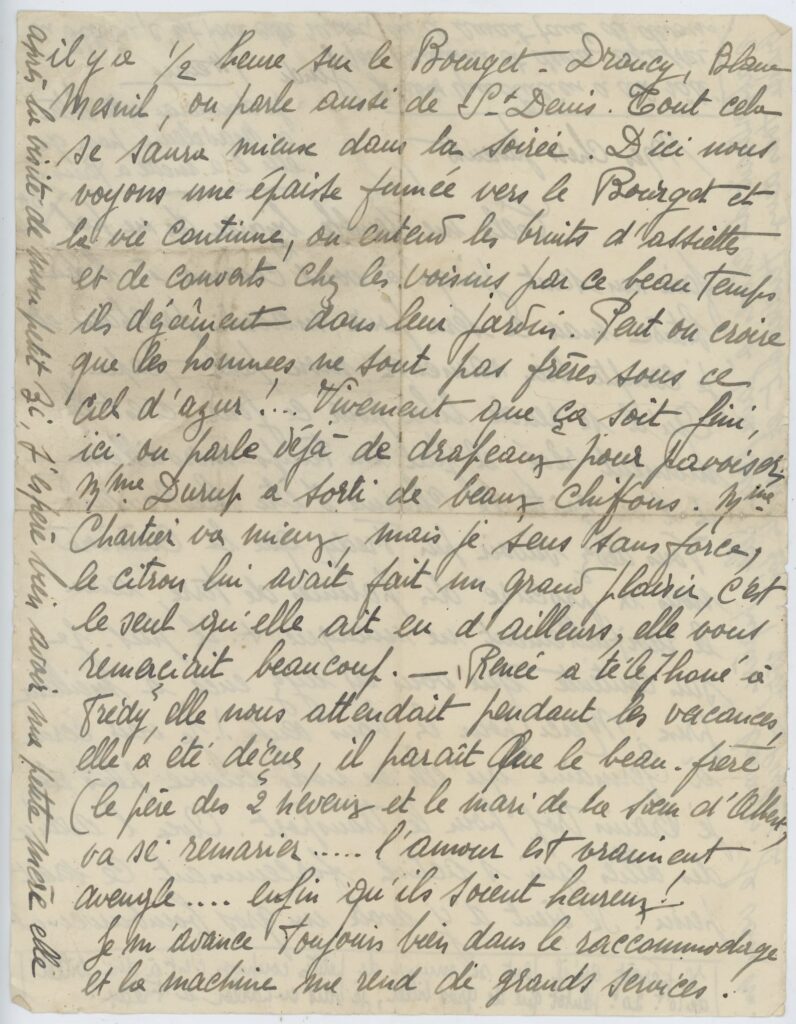 il y a 1/2 heure sur le Bourget - Drancy, Blanc
Mesnil, on parle aussi de St Denis. Tout cela
se saura mieux dans la soirée. D'ici nous
voyons une épaisse fumée vers le Bourget et
la vie continue, on entend les bruits d'assiettes
et de couverts chez les voisins par ce beau temps
ils déjeûnent dans leur jardin. Peut on croire
que les hommes ne sont pas frères sous ce
ciel d'azur !... Vivement que ça soit fini,
ici on parle déjà de drapeaux pour pavoiser,
Mme Durup a sorti de beaux chiffons. Mme
Chartier va mieux, mais je sens sans force,
le citron lui avait fait un grand plaisir, c'est
le seul qu'elle ait eu d'ailleurs, elle vous
remerciait beaucoup. — Renée a téléphoné à
Frédy, elle nous attendait pendant les vacances,
elle a été déçue, il paraît Que le beau-frère
(le père des 2 neveux et le mari de la sœur d'Albert,
va se remarier ..... l'amour est vraiment
aveugle .... enfin qu'ils soient heureux !
Je m'avance Toujours bien dans le raccommodage
et la machine me rend de grands services.
après la visite de mon petit Zi, j'espère bien avoir ma petite mère elle